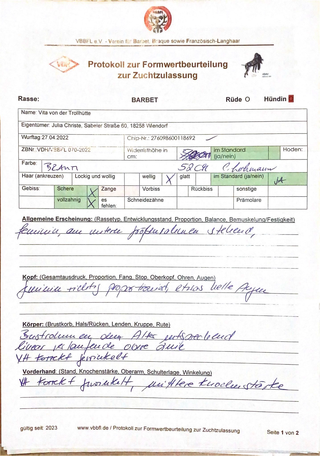 VBBFL e.V. - Verein für Barbet, Braque sowie Französisch-Langhaar
Protokoll zur Formwertbeurteilung
zur Zuchtzulassung
Rasse: BARBET Rüde O Hündin
Name: Vita von der Trollhütte
Eigentümer: Julia Christe, Sabmer Straße 60, 18258 Wiendorf
Wurftag 27.04.2022 Chip-Nr.: 276098600118692
ZBNr. VDH/VBBFL 070-2022 Widerristhöhe in cm: im Standard (ja/nein) Hoden:
Farbe: BRAUN 52CM
Haar (ankreuzen) Lockig und wollig wellig X glatt im Standard (ja/nein) JA
Gebiss: Schere X Zange Vorbiss Rückbiss sonstige
vollzahnig X es fehlen Schneidezähne Prämolare
Allgemeine Erscheinung: (Rassetyp, Entwicklungsstand, Proportion, Balance, Bemuskelung/Festigkeit)
feminin, am unteren stehend,
Kopf: (Gesamtausdruck, Proportion, Fang, Stop, Oberkopf, Ohren, Augen)
feminin richtig proportioniert, etwas helle Augen
Körper: (Brustkorb, Hals/Rücken, Lenden, Kruppe, Rute)
Brustvolumen dem Alter entsprechend
VH korrekt gewinkelt
Vorderhand: (Stand, Knochenstärke, Oberarm, Schulterlage, Winkelung)
VH korrekt gewinkelt, mittlere Knochenstärke
gültig seit 2023 www.vbbfl.de / Protokoll zur Formwertbeurteilung zur Zuchtzulassung Seite 1 von 2